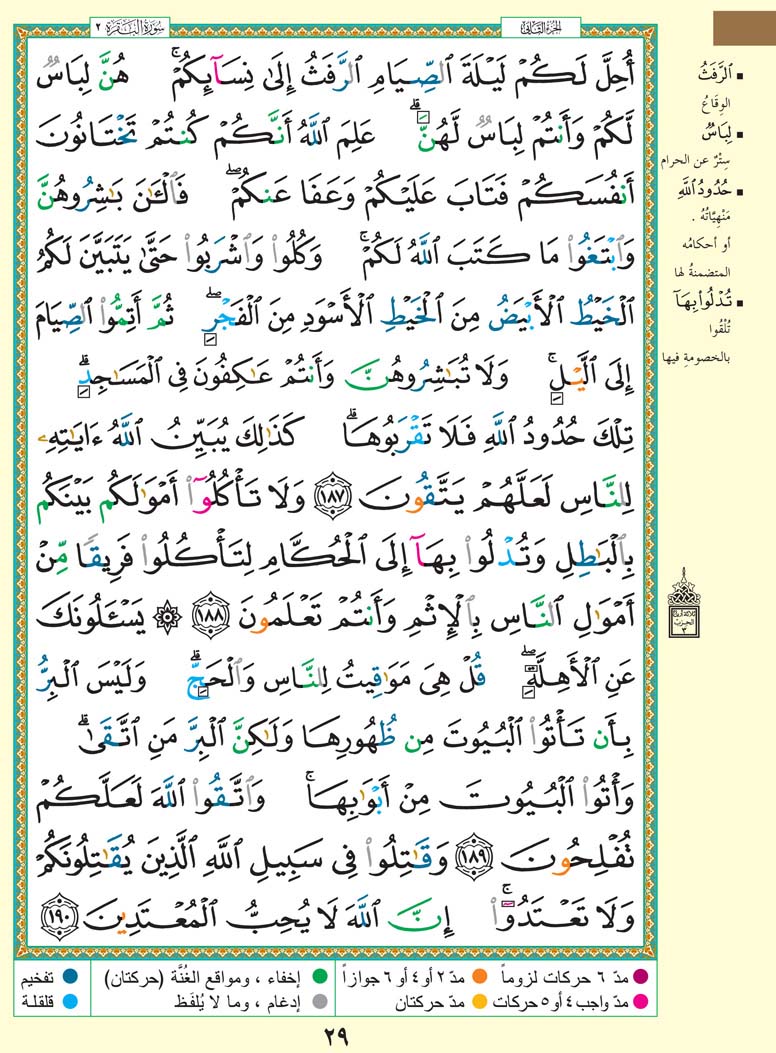 سورة البقرة ٢
الجزء الثاني
أُحِلَّ لَكُمْ لَيْلَةَ ٱلصِّيَامِ ٱلرَّفَثُ إِلَىٰ نِسَآئِكُمْ ۚ هُنَّ لِبَاسٌ
لَّكُمْ وَأَنتُمْ لِبَاسٌ لَّهُنَّ ۗ عَلِمَ ٱللَّهُ أَنَّكُمْ كُنتُمْ تَخْتَانُونَ
أَنفُسَكُمْ فَتَابَ عَلَيْكُمْ وَعَفَا عَنكُمْ ۖ فَٱلْـَٰٔنَ بَٰشِرُوهُنَّ
وَٱبْتَغُوا۟ مَا كَتَبَ ٱللَّهُ لَكُمْ ۚ وَكُلُوا۟ وَٱشْرَبُوا۟ حَتَّىٰ يَتَبَيَّنَ لَكُمُ
ٱلْخَيْطُ ٱلْأَبْيَضُ مِنَ ٱلْخَيْطِ ٱلْأَسْوَدِ مِنَ ٱلْفَجْرِ ۖ ثُمَّ أَتِمُّوا۟ ٱلصِّيَامَ
إِلَى ٱلَّيْلِ ۚ وَلَا تُبَٰشِرُوهُنَّ وَأَنتُمْ عَٰكِفُونَ فِى ٱلْمَسَٰجِدِ ۗ
تِلْكَ حُدُودُ ٱللَّهِ فَلَا تَقْرَبُوهَا ۗ كَذَٰلِكَ يُبَيِّنُ ٱللَّهُ ءَايَٰتِهِۦ
لِلنَّاسِ لَعَلَّهُمْ يَتَّقُونَ ١٨٧ وَلَا تَأْكُلُوٓا۟ أَمْوَٰلَكُم بَيْنَكُم
بِٱلْبَٰطِلِ وَتُدْلُوا۟ بِهَآ إِلَى ٱلْحُكَّامِ لِتَأْكُلُوا۟ فَرِيقًا مِّنْ
أَمْوَٰلِ ٱلنَّاسِ بِٱلْإِثْمِ وَأَنتُمْ تَعْلَمُونَ ١٨٨ ۞ يَسْـَٔلُونَكَ
عَنِ ٱلْأَهِلَّةِ ۖ قُلْ هِىَ مَوَٰقِيتُ لِلنَّاسِ وَٱلْحَجِّ ۗ وَلَيْسَ ٱلْبِرُّ
بِأَن تَأْتُوا۟ ٱلْبُيُوتَ مِن ظُهُورِهَا وَلَٰكِنَّ ٱلْبِرَّ مَنِ ٱتَّقَىٰ ۗ
وَأْتُوا۟ ٱلْبُيُوتَ مِنْ أَبْوَٰبِهَا ۚ وَٱتَّقُوا۟ ٱللَّهَ لَعَلَّكُمْ
تُفْلِحُونَ ١٨٩ وَقَٰتِلُوا۟ فِى سَبِيلِ ٱللَّهِ ٱلَّذِينَ يُقَٰتِلُونَكُمْ
وَلَا تَعْتَدُوٓا۟ ۚ إِنَّ ٱللَّهَ لَا يُحِبُّ ٱلْمُعْتَدِينَ ١٩٠
ٱلرَّفَثُ
الوِقَاعُ
لِبَاسٌ
سِتْرٌ عن الحرام
حُدُودُ ٱللَّهِ
مَنْهِيَّاتُهُ .
أو أحكامُه
المتضمنةُ لها
تُدْلُوا۟ بِهَآ
تُلْقُوا
بالخصومةِ فيها
ثلاثة أرباع
الحزب
٣
مدّ ٦ حركات لزوماً مدّ ٢ أو ٤ أو ٦ جوازاً إخفاء ، ومواقع الغُنَّة (حركتان) تفخيم
مدّ واجب ٤ أو ٥ حركات مدّ حركتان إدغام ، وما لا يُلفَظ قلقلة
٢٩